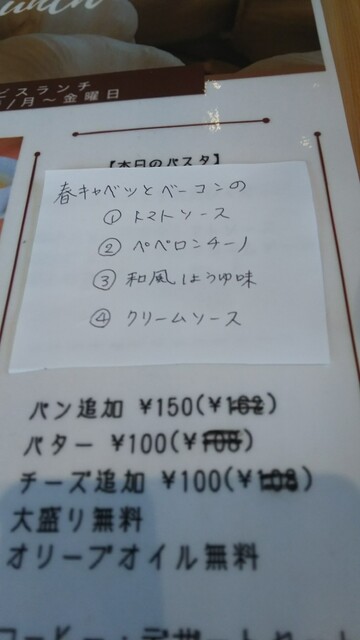 unch
ビスランチ
/月～金曜日
【本日のパスタ】
春キャベツとベーコンの
① トマトソース
② ペペロンチーノ
③ 和風しょうゆ味
④ クリームソース
パン追加 ¥150(¥162)
バター ¥100(¥108)
チーズ追加 ¥100(¥108)
大盛り無料
オリーブオイル無料
コーヒー・デザートセット